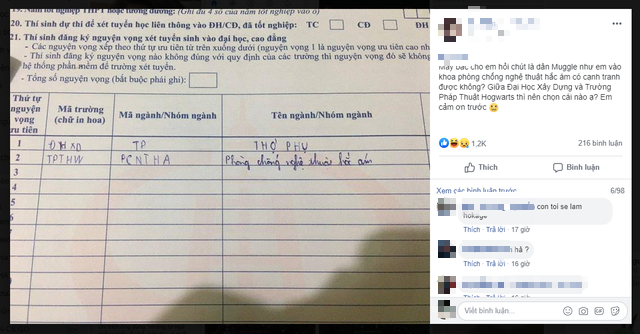 19. Năm tốt nghiệp THPT hoặc tương đương: (Ghi đủ 4 số của năm tốt nghiệp vào ô)
20. Thí sinh dự thi để xét tuyển học liên thông vào ĐH/CĐ, đã tốt nghiệp: TC CĐ ĐH
21. Thí sinh đăng ký nguyện vọng xét tuyển sinh vào đại học, cao đẳng
- Các nguyện vọng xếp theo thứ tự ưu tiên từ trên xuống dưới (nguyện vọng 1 là nguyện vọng ưu tiên cao nh
- Thí sinh đăng ký nguyện vọng nào không đúng với quy định của các trường thì nguyện vọng đó sẽ không
hệ thống phần mềm để trường xét tuyển.
- Tổng số nguyện vọng (bắt buộc phải ghi):
Thứ tự nguyện vọng ưu tiên
Mã trường (chữ in hoa)
Mã ngành/Nhóm ngành
Tên ngành/Nhóm ngành
1 ĐHXD TP THỢ PHỤ
2 TPTHW PCNTHA Phòng chống nghệ thuật hắc ám
3
4
5
6
7
8
9
10
Mấy bác cho em hỏi chút là dân Muggle như em vào
khoa phòng chống nghệ thuật hắc ám có cạnh tranh
được không? Giữa Đại Học Xây Dựng và Trường
Pháp Thuật Hogwarts thì nên chọn cái nào ạ? Em
cảm ơn trước
1,2K 216 bình luận
Thích Bình luận
Xem các bình luận trước 6/98
con toi se lam
hokage
Thích · Trả lời · 17 giờ
hả ?
Thích · Trả lời · 16 giờ
Thích · Trả lời · 16 giờ
Viết bình luận...